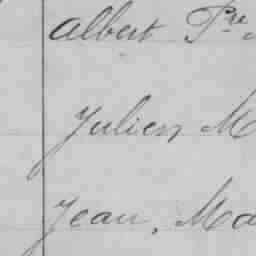 Albert Pre
Julien M
Jean, Ma